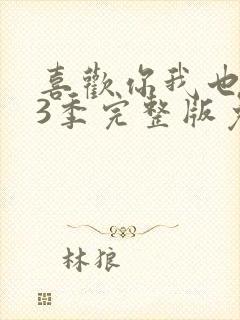 喜歡你我也
3季完整版
林狼